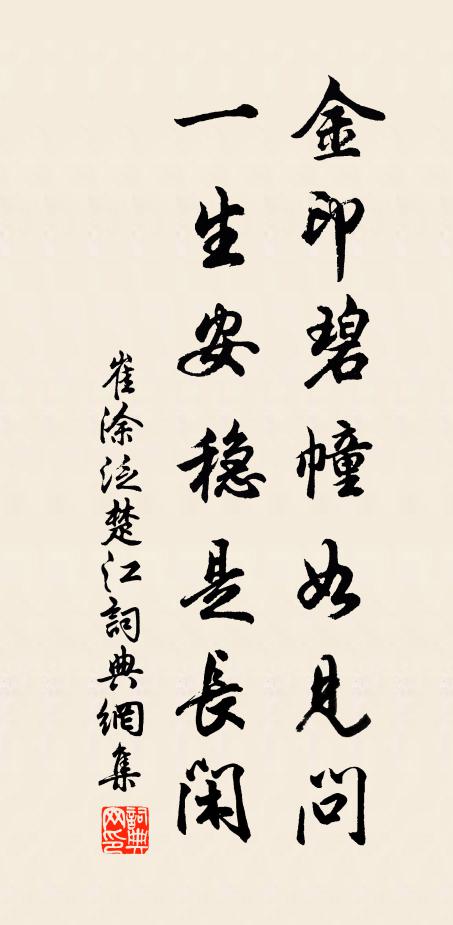 金印碧幢如見問
一生安穩是長閑
崔涂泛楚江詞典網集
詞典網印